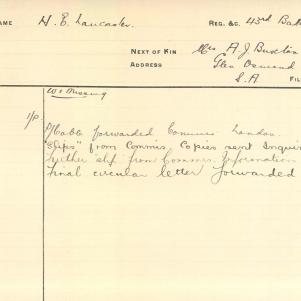 NAME H. E. Lancaster. REG. &C. 43rd Bat
NEXT OF KIN Mrs A. J. Buxton
ADDRESS Glen Osmond
S.A FIL
W & Missing
forwarded Commrs London.
"Slips" from Commrs. Copies sent Inquir
further slip from Commrs. Information
Final circular letter forwarded